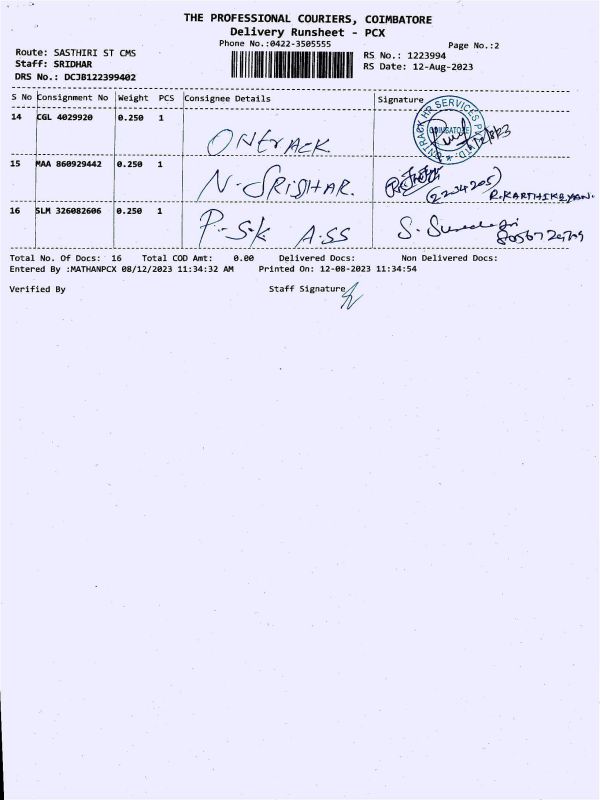 THE PROFESSIONAL COURIERS, COIMBATORE
Delivery Runsheet - PCX
Phone No.:0422-3505555
Page No.:2
Route: SASTHIRI ST CMS
RS No.: 1223994
Staff: SRIDHAR
RS Date: 12-Aug-2023
DRS No.: DCJB122399402
S No Consignment No Weight PCS Consignee Details Signature
14 CGL 4029920 0.250 1 ONtrACK
15 MAA 860929442 0.250 1 N.SRIDHAR. R.KARTHIKEYAN.
16 SLM 326082606 0.250 1 P.S.K ASS S.
Total No. Of Docs: 16 Total COD Amt: 0.00 Delivered Docs: Non Delivered Docs:
Entered By :MATHANPCX 08/12/2023 11:34:32 AM Printed On: 12-08-2023 11:34:54
Verified By Staff Signature